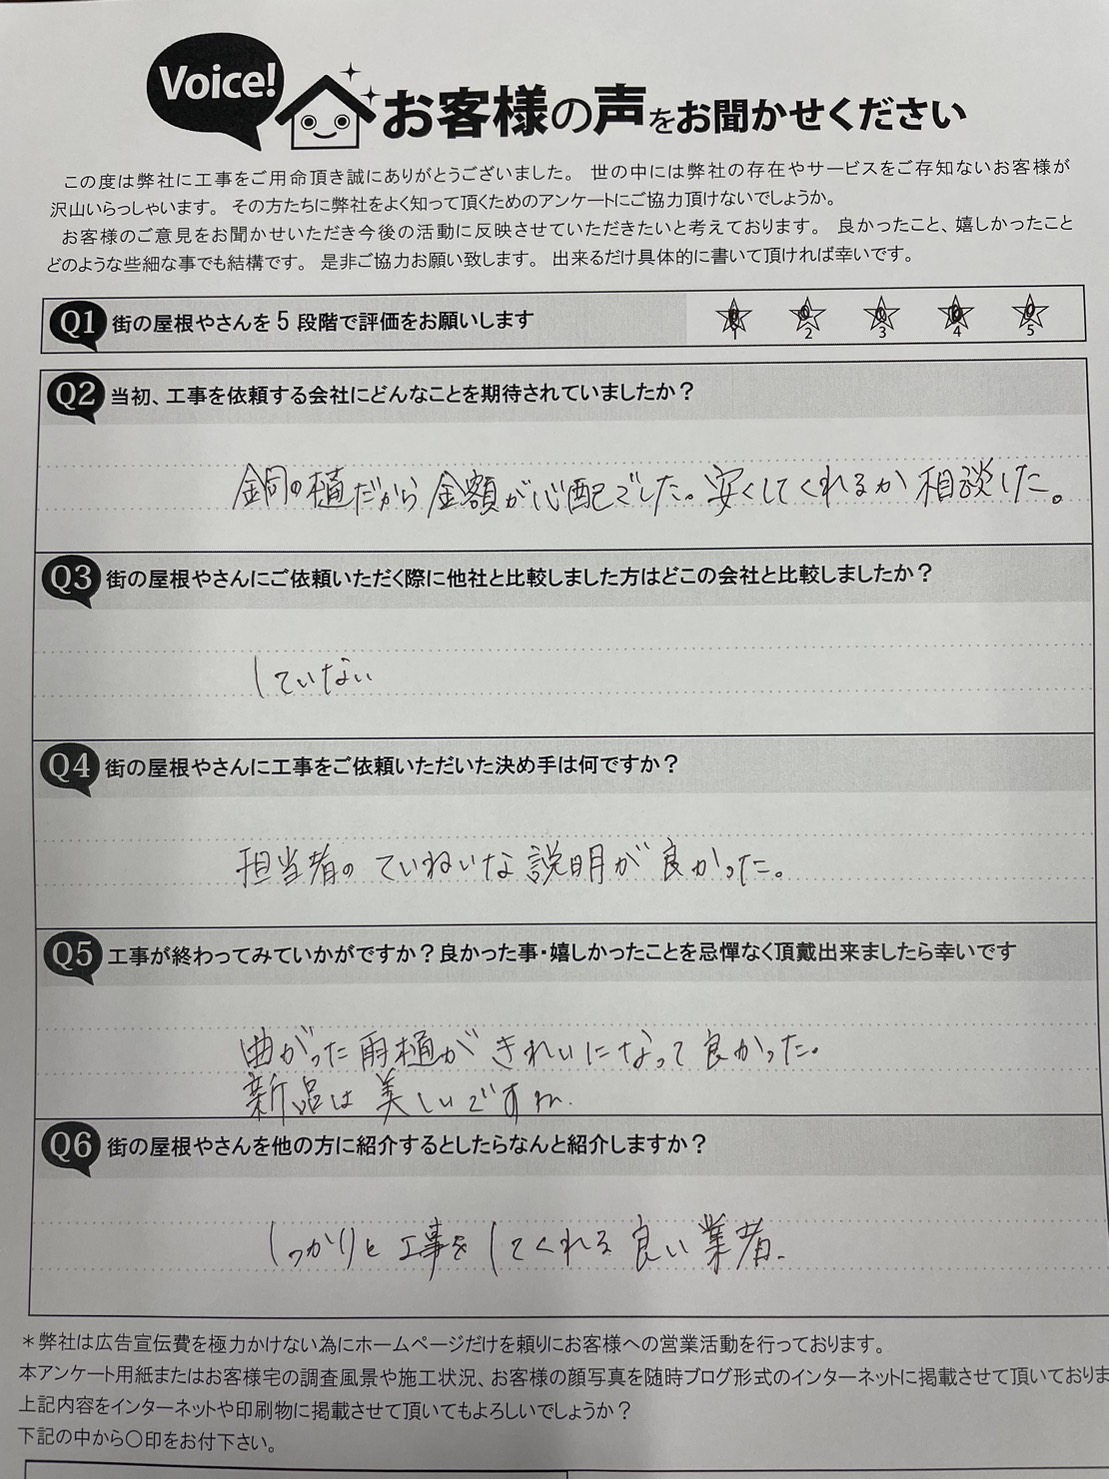 Voice!
お客様の声をお聞かせください
この度は弊社に工事をご用命頂き誠にありがとうございました。 世の中には弊社の存在やサービスをご存知ないお客様が
沢山いらっしゃいます。 その方たちに弊社をよく知って頂くためのアンケートにご協力頂けないでしょうか。
お客様のご意見をお聞かせいただき今後の活動に反映させていただきたいと考えております。 良かったこと、嬉しかったこと
どのような些細な事でも結構です。 是非ご協力お願い致します。 出来るだけ具体的に書いて頂ければ幸いです。
Q1 街の屋根やさんを5段階で評価をお願いします 1 2 3 4 5
Q2 当初、工事を依頼する会社にどんなことを期待されていましたか？
銅の樋だから金額が心配でした。安くしてくれるか相談した。
Q3 街の屋根やさんにご依頼いただく際に他社と比較しました方はどこの会社と比較しましたか？
していない
Q4 街の屋根やさんに工事をご依頼いただいた決め手は何ですか？
担当者のていねいな説明が良かった。
Q5 工事が終わってみていかがですか？良かった事・嬉しかったことを忌憚なく頂戴出来ましたら幸いです
曲がった雨樋がきれいになって良かった。
新品は美しいですね.
Q6 街の屋根やさんを他の方に紹介するとしたらなんと紹介しますか？
しっかりと工事をしてくれる良い業者.
＊弊社は広告宣伝費を極力かけない為にホームページだけを頼りにお客様への営業活動を行っております。
本アンケート用紙またはお客様宅の調査風景や施工状況、お客様の顔写真を随時ブログ形式のインターネットに掲載させて頂いておりま
上記内容をインターネットや印刷物に掲載させて頂いてもよろしいでしょうか？
下記の中から〇印をお付下さい。